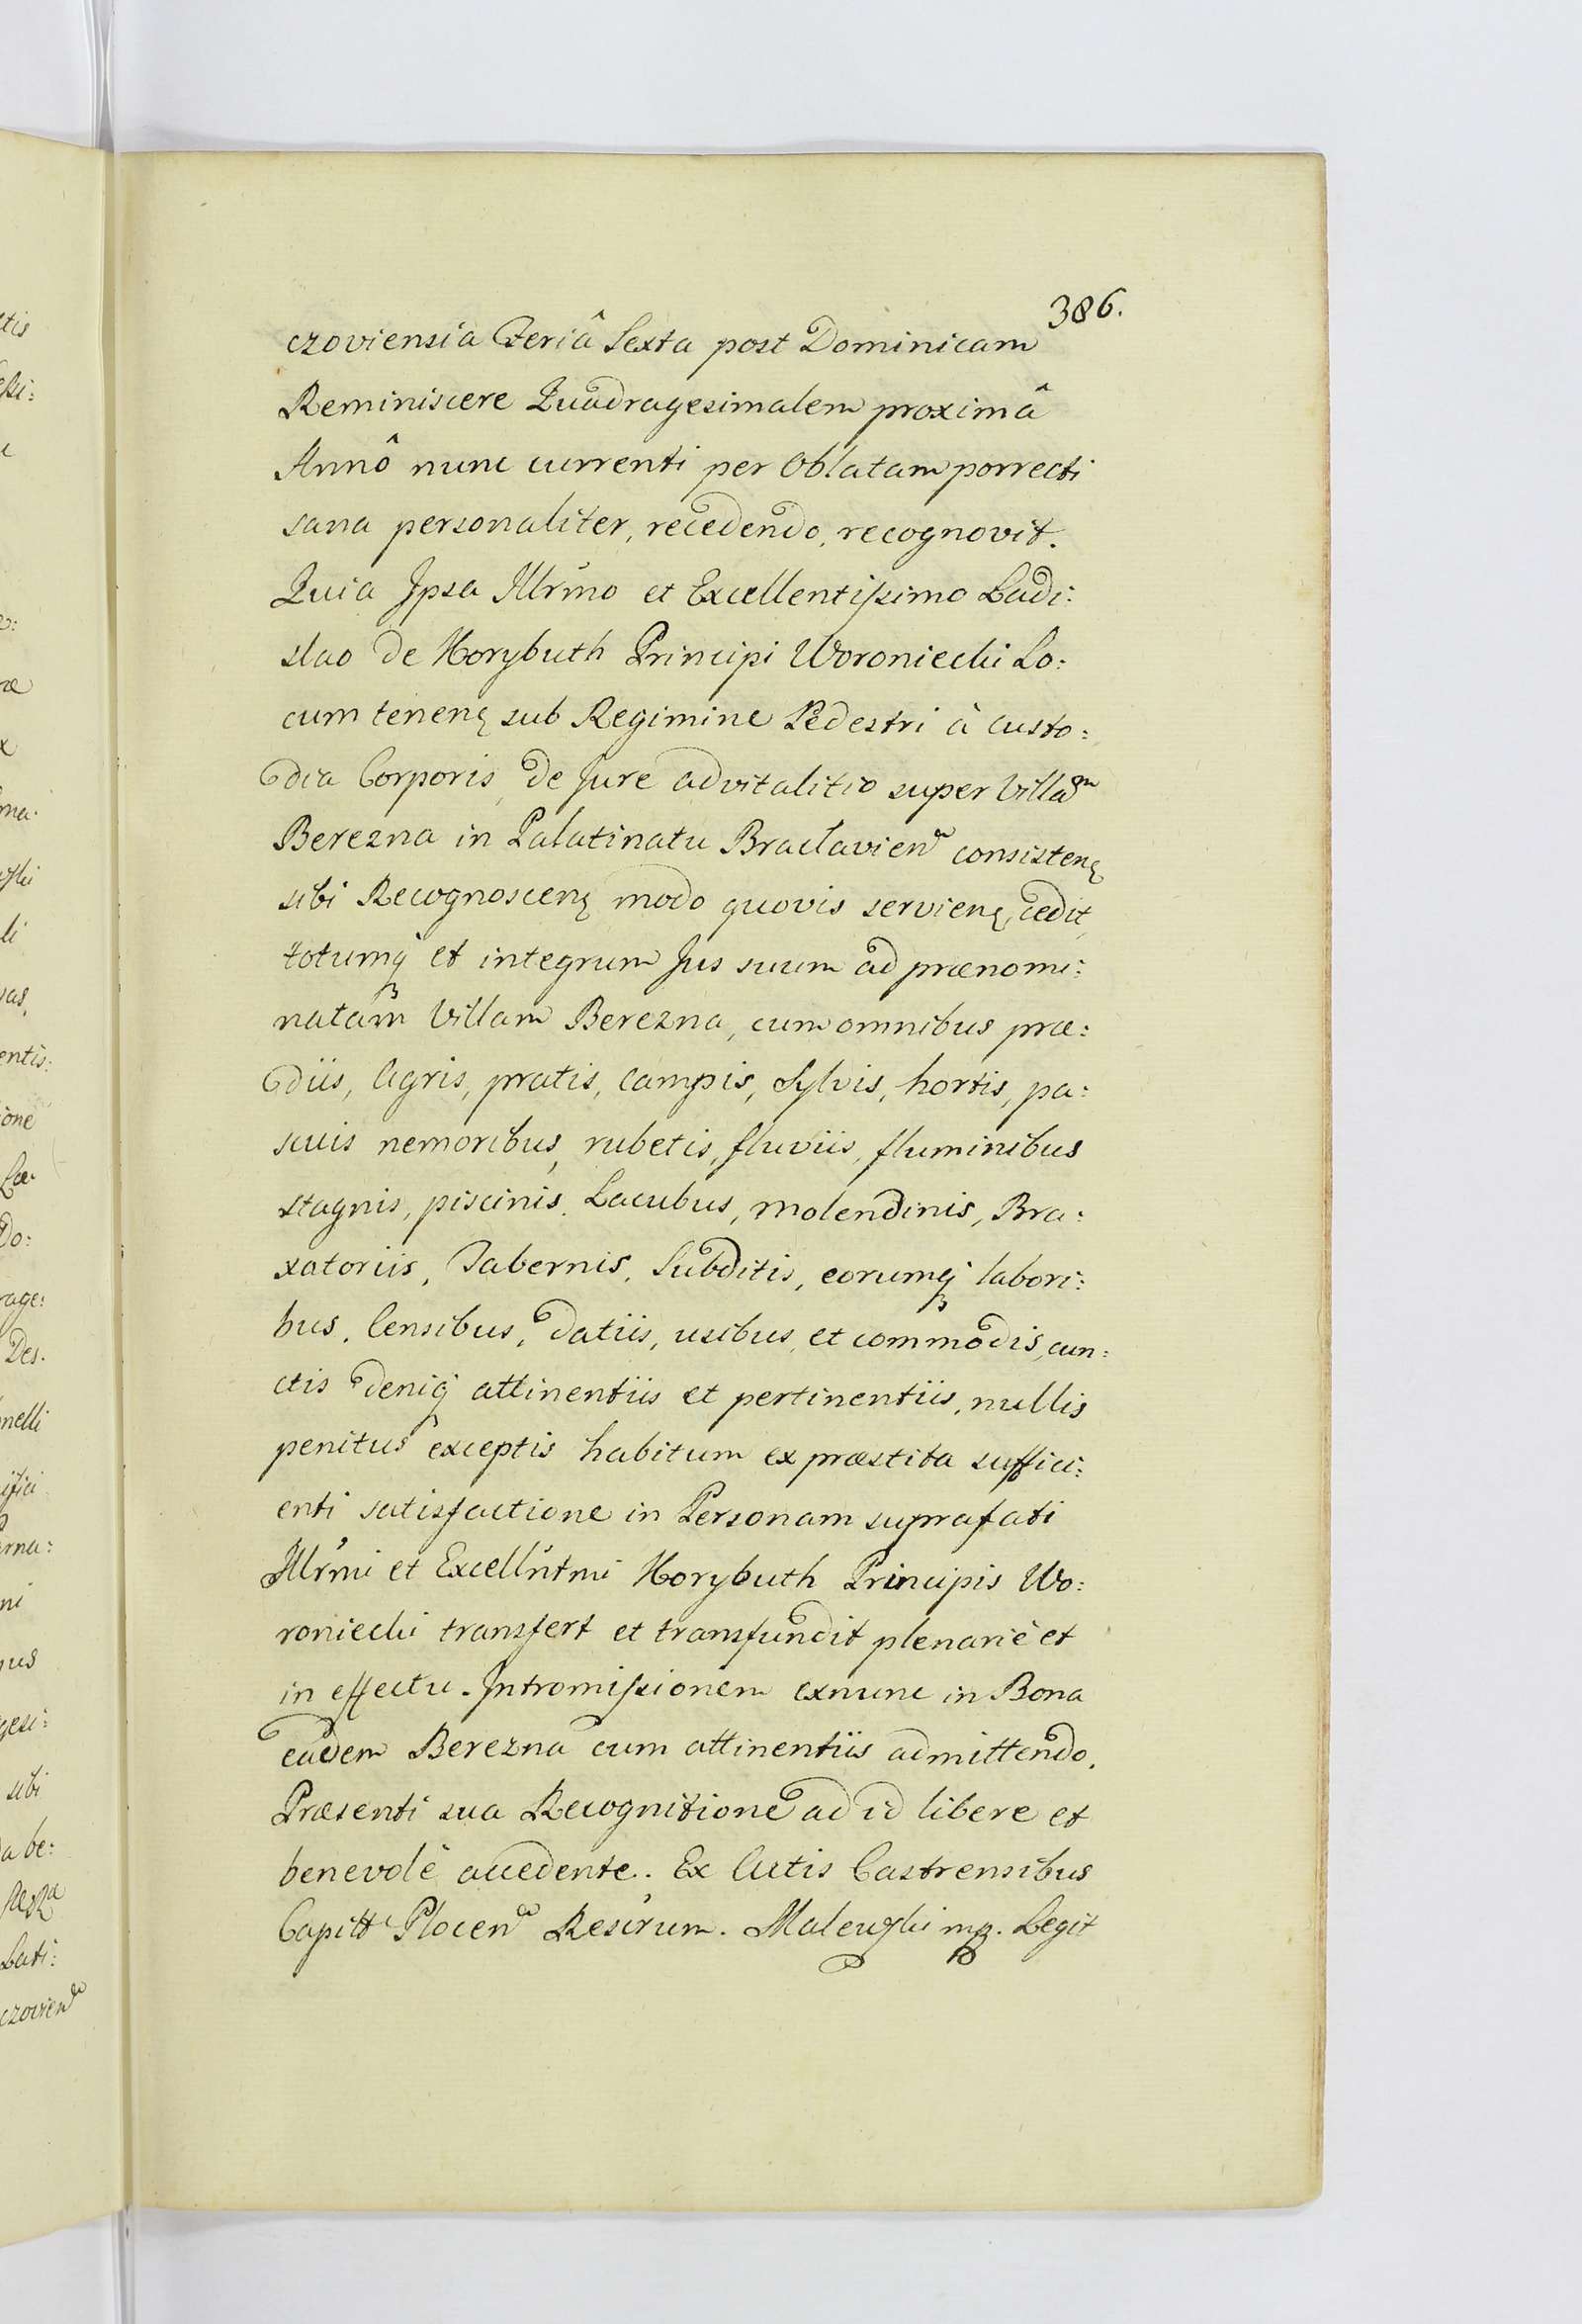 386.
czoviensia Feriâ Sexta post Dominicam
Reminiscere Quadragesimalem proximâ
Annô nunc currenti per Oblatam porrecti
sana personaliter, recedendo, recognovit.
Quia Ipsa Illrmo et Excellentissimo Ladi:
slao de Korybuth Principi Woroniecki Lo:
cum tenenę sub Regimine Pedestri à Custo:
dia Corporis, de Jure advitalitio super Villam
Berezna in Palatinatu Braclavien̄ consistenę
sibi Recognoscenę modo quovis servienę, cedit,
totumq́ et integrum Jus suum ad prænomi:
natam Villam Berezna, cum omnibus præ:
diis, Agris, pratis, Campis, Sylvis, hortis, pa:
scuis nemoribus, rubetis, fluviis, fluminibus
stagnis, piscinis, Lacubus, molendinis, Bra:
xatoriis, Tabernis, Subditis, eorumq́ labori:
bus, Censibus, datiis, usibus, et commodis, cun:
ctis deniq́ attinentiis et pertinentiis, nullis
penitus exceptis habitum ex præstita suffici:
enti satisfactione in Personam suprafati
Illrmi et Excellntmi Korybuth Principis Wo:
roniecki transfert et transfundit plenariè et
in effectu. Intromissionem exnunc in Bona
eadem Berezna cum attinentiis admittendo.
Præsenti sua Recognitione ad id libere et
benevolè accedente. Ex Actis Castrensibus
Capitt Plocen̄ Rescrum. Malewski mp. Legit